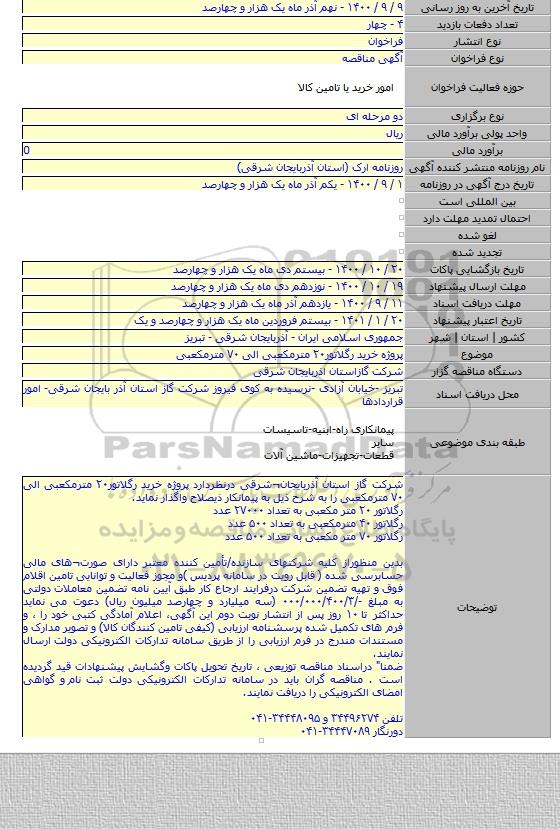 تاریخ آخرین به روز رسانی ۹ / ۹ / ۱۴۰۰ - نهم آذر ماه یک هزار و چهارصد
تعداد دفعات بازدید ۴ - چهار
نوع انتشار فراخوان
نوع فراخوان آگهی مناقصه
حوزه فعالیت فراخوان امور خرید یا تامین کالا
نوع برگزاری دو مرحله ای
واحد پولی برآورد مالی ریال
برآورد مالی 0
نام روزنامه منتشر کننده آگهی روزنامه ارک (استان آذربایجان شرقی)
تاریخ درج آگهی در روزنامه ۱ / ۹ / ۱۴۰۰ - یکم آذر ماه یک هزار و چهارصد
بین المللی است
احتمال تمدید مهلت دارد
لغو شده
تجدید شده
تاریخ بازگشایی پاکات ۲۰ / ۱۰ / ۱۴۰۰ - بیستم دی ماه یک هزار و چهارصد
مهلت ارسال پیشنهاد ۱۹ / ۱۰ / ۱۴۰۰ - نوزدهم دی ماه یک هزار و چهارصد
مهلت دریافت اسناد ۱۱ / ۹ / ۱۴۰۰ - یازدهم آذر ماه یک هزار و چهارصد
تاریخ اعتبار پیشنهاد ۲۰ / ۱ / ۱۴۰۱ - بیستم فروردین ماه یک هزار و چهارصد و یک
کشور | استان | شهر جمهوری اسلامی ایران - آذربایجان شرقی - تبریز
موضوع پروژه خرید رگلاتور۲۰ مترمکعبی الی ۷۰ مترمکعبی
دستگاه مناقصه گزار شرکت گازاستان آذربایجان شرقی
محل دریافت اسناد تبریز -خیابان آزادی -نرسیده به کوی فیروز شرکت گاز استان آذر بایجان شرقی- امور
قراردادها
پیمانکاری راه-ابنیه-تاسیسات
طبقه بندی موضوعی سایر
قطعات-تجهیزات-ماشین آلات
ParsNamadData
پایگاه اطلاع رسانی مناقصه و مزایده
۰۲۱-۸۸۳۴۹۶۷۰-۵
توضیحات
شرکت گاز استان آذربایجان¬شرقی درنظردارد پروژه خرید رگلاتور۲۰ مترمکعبی الی
۷۰ مترمکعبی را به شرح ذیل به پیمانکار ذیصلاح واگذار نماید.
رگلاتور ۲۰ متر مکعبی به تعداد ۲۷۰۰۰ عدد
رگلاتور ۴۰ مترمکعبی به تعداد ۵۰۰ عدد
رگلاتور ۷۰ متر مکعبی به تعداد ۵۰۰ عدد
بدین منظوراز کلیه شرکتهای سازنده/تأمین کننده معتبر دارای صورت¬های مالی
حسابرسی شده ( قابل رویت در سامانه پردیس )و مجوز فعالیت و توانایی تامین اقلام
فوق و تهیه تضمین شرکت درفرایند ارجاع کار طبق آیین نامه تضمین معاملات دولتی
به مبلغ -/۰۰۰/۰۰۰/۴۰۰/۳ (سه میلیارد و چهارصد میلیون ریال) دعوت می نماید
حداکثر تا ۱۰ روز پس از انتشار نوبت دوم این آگهی، اعلام آمادگی کتبی خود را ، و
فرم های تکمیل شده پرسشنامه ارزیابی (کیفی تامین کنندگان کالا) و تصویر مدارک و
مستندات مندرج در فرم ارزیابی را از طریق سامانه تدارکات الکترونیکی دولت ارسال
نمایند.
ضمنا" دراسناد مناقصه توزیعی ، تاریخ تحویل پاکات وگشایش پیشنهادات قید گردیده
است . مناقصه گران باید در سامانه تدارکات الکترونیکی دولت ثبت نام و گواهی
امضای الکترونیکی را دریافت نمایند.
تلفن ۳۴۴۹۶۲۷۴ و ۳۴۴۴۸۰۹۵-۰۴۱
دورنگار ۳۴۴۴۷۰۸۹-۰۴۱